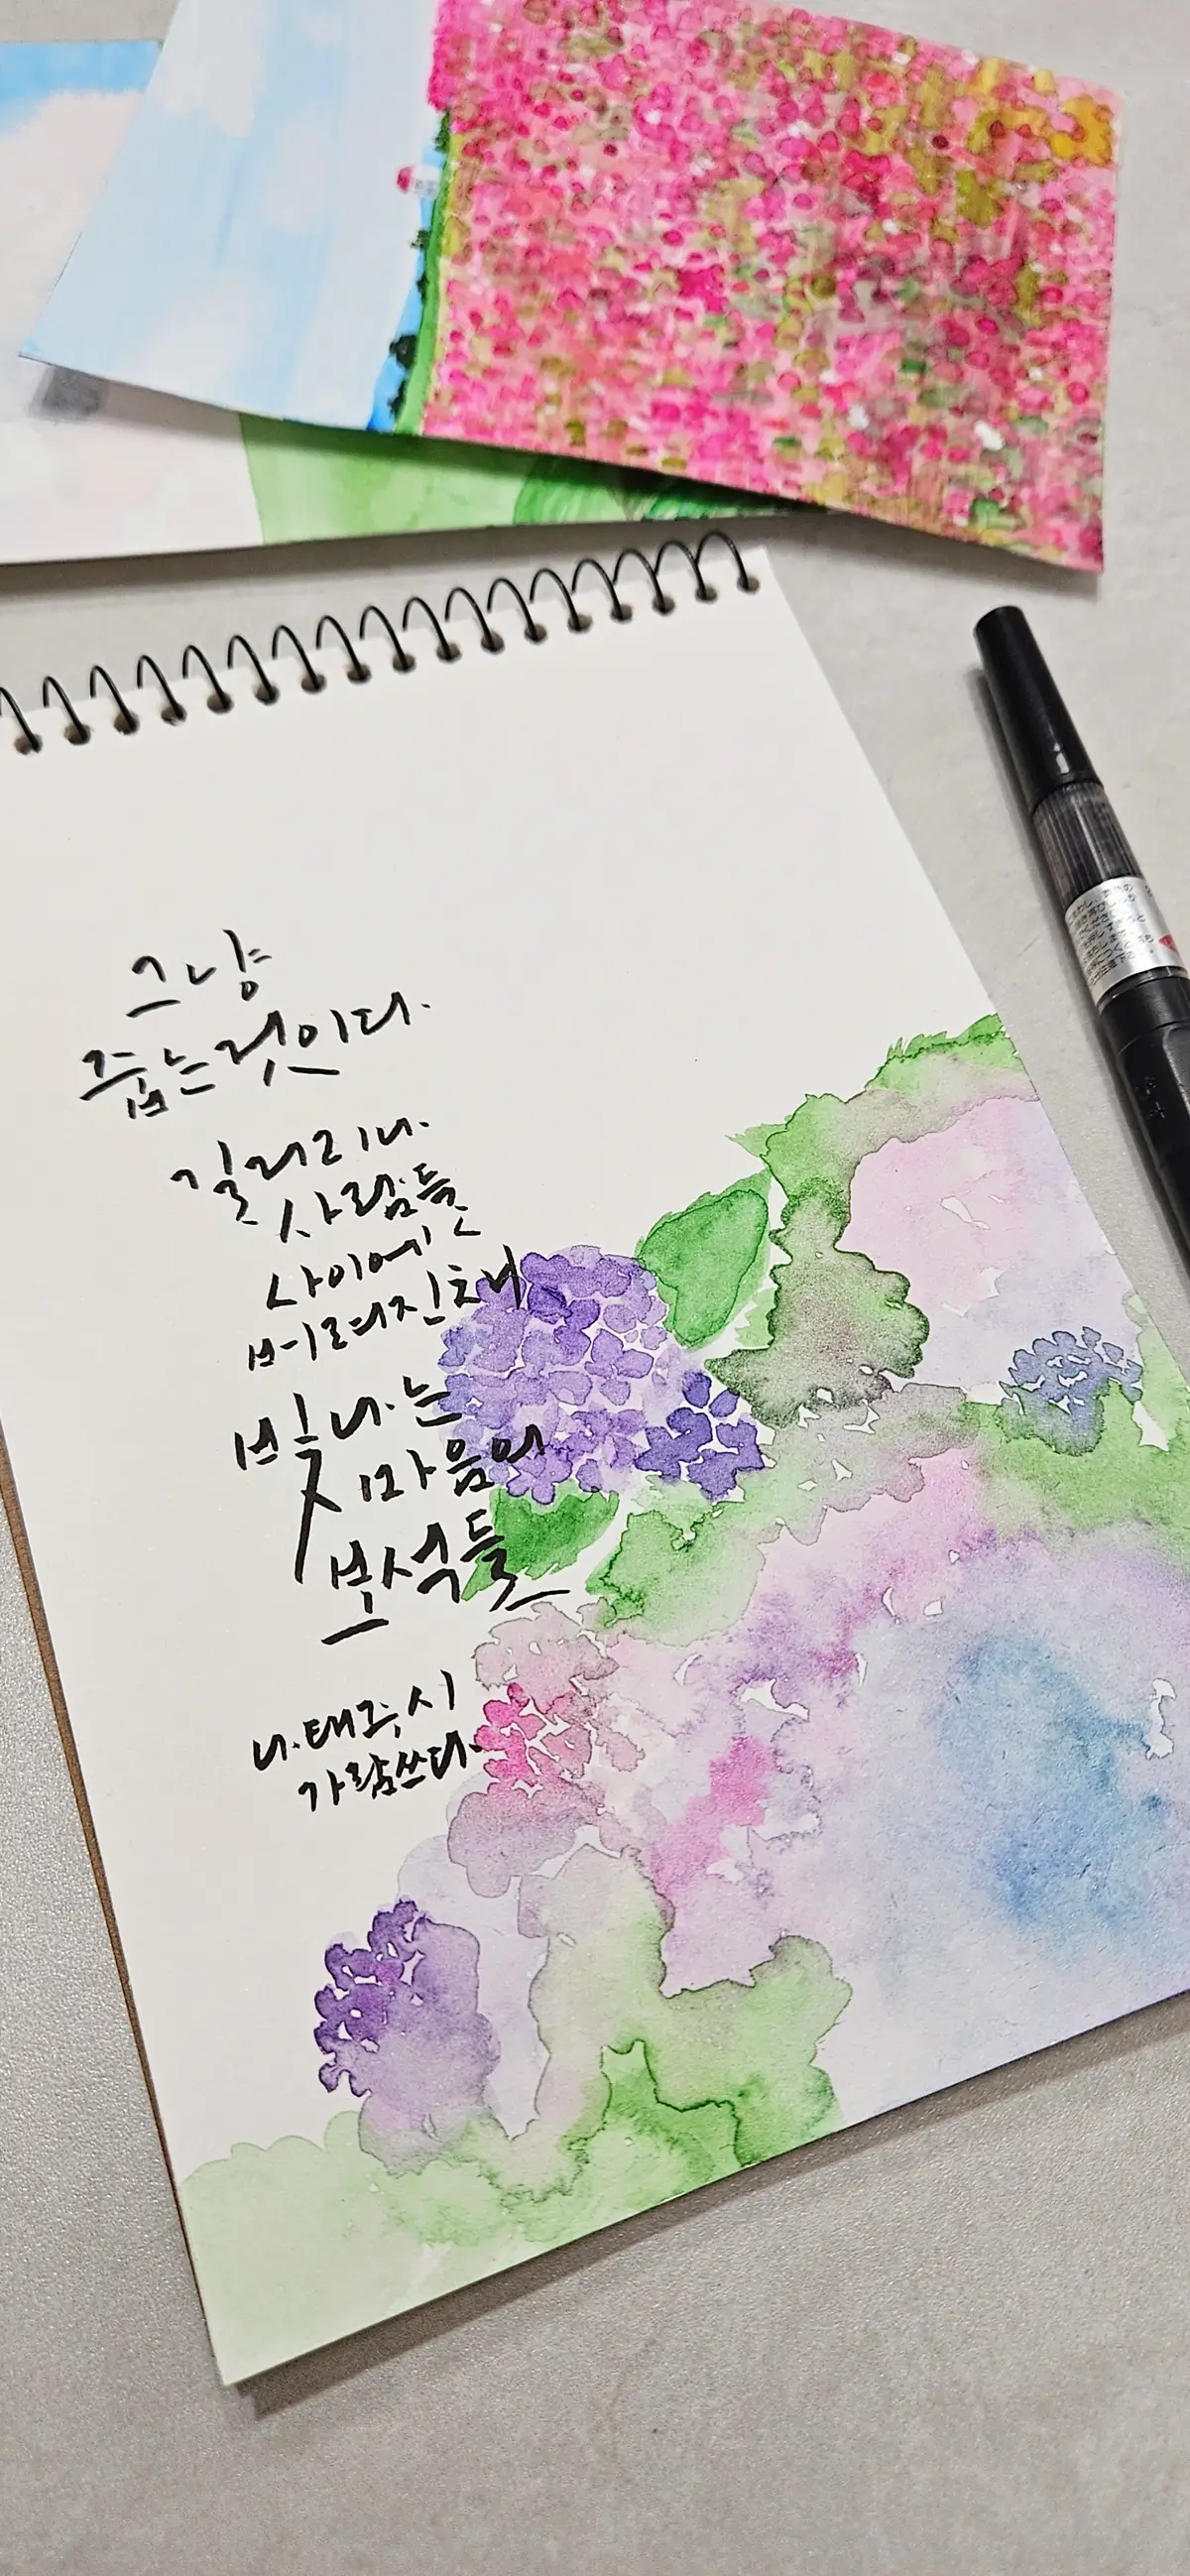 그냥
줍는것이다.
길거리나
사람들
사이에
버려진채
빛나는
마음의
보석들
나.태주, 시
가람쓰다.